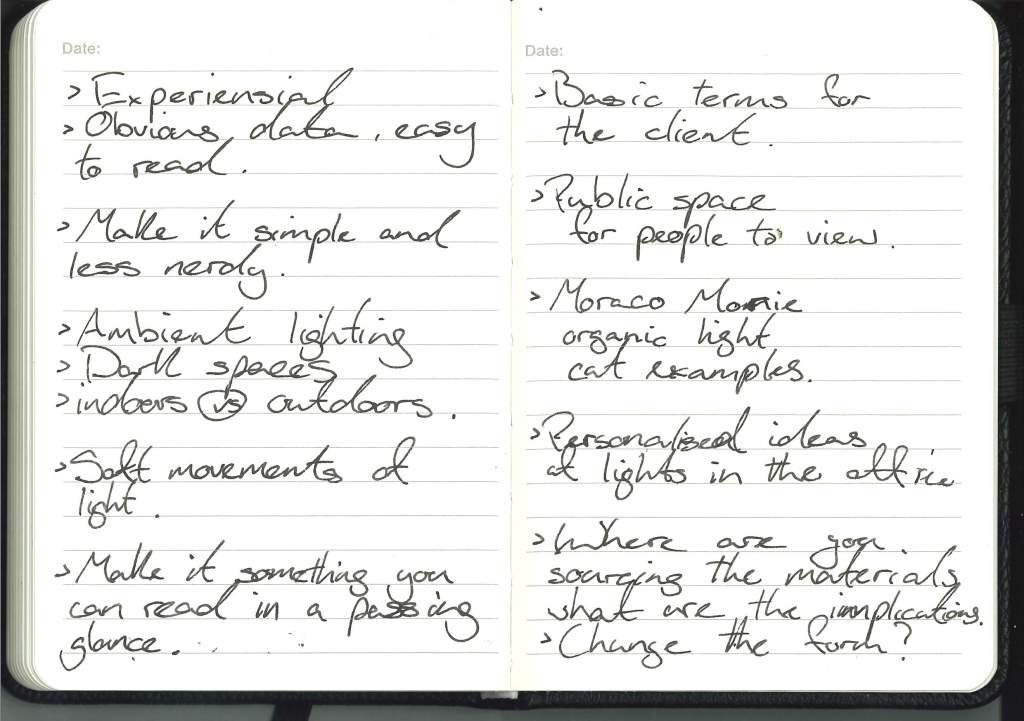 Date:
> Experiensial
> Obvious data, easy
to read.
> Make it simple and
less nerdy.
> Ambient lighting
> Dark spaces
> indoors vs outdoors.
> Soft movements of
light.
> Make it something you
can read in a passing
glance.
Date:
> Basic terms for
the client.
> Public space
for people to view.
> Moraco
organic light
cat examples.
> Personalised ideas
of lights in the office
> Where are you
sourcing the materials,
what are the implications.
> Change the form?